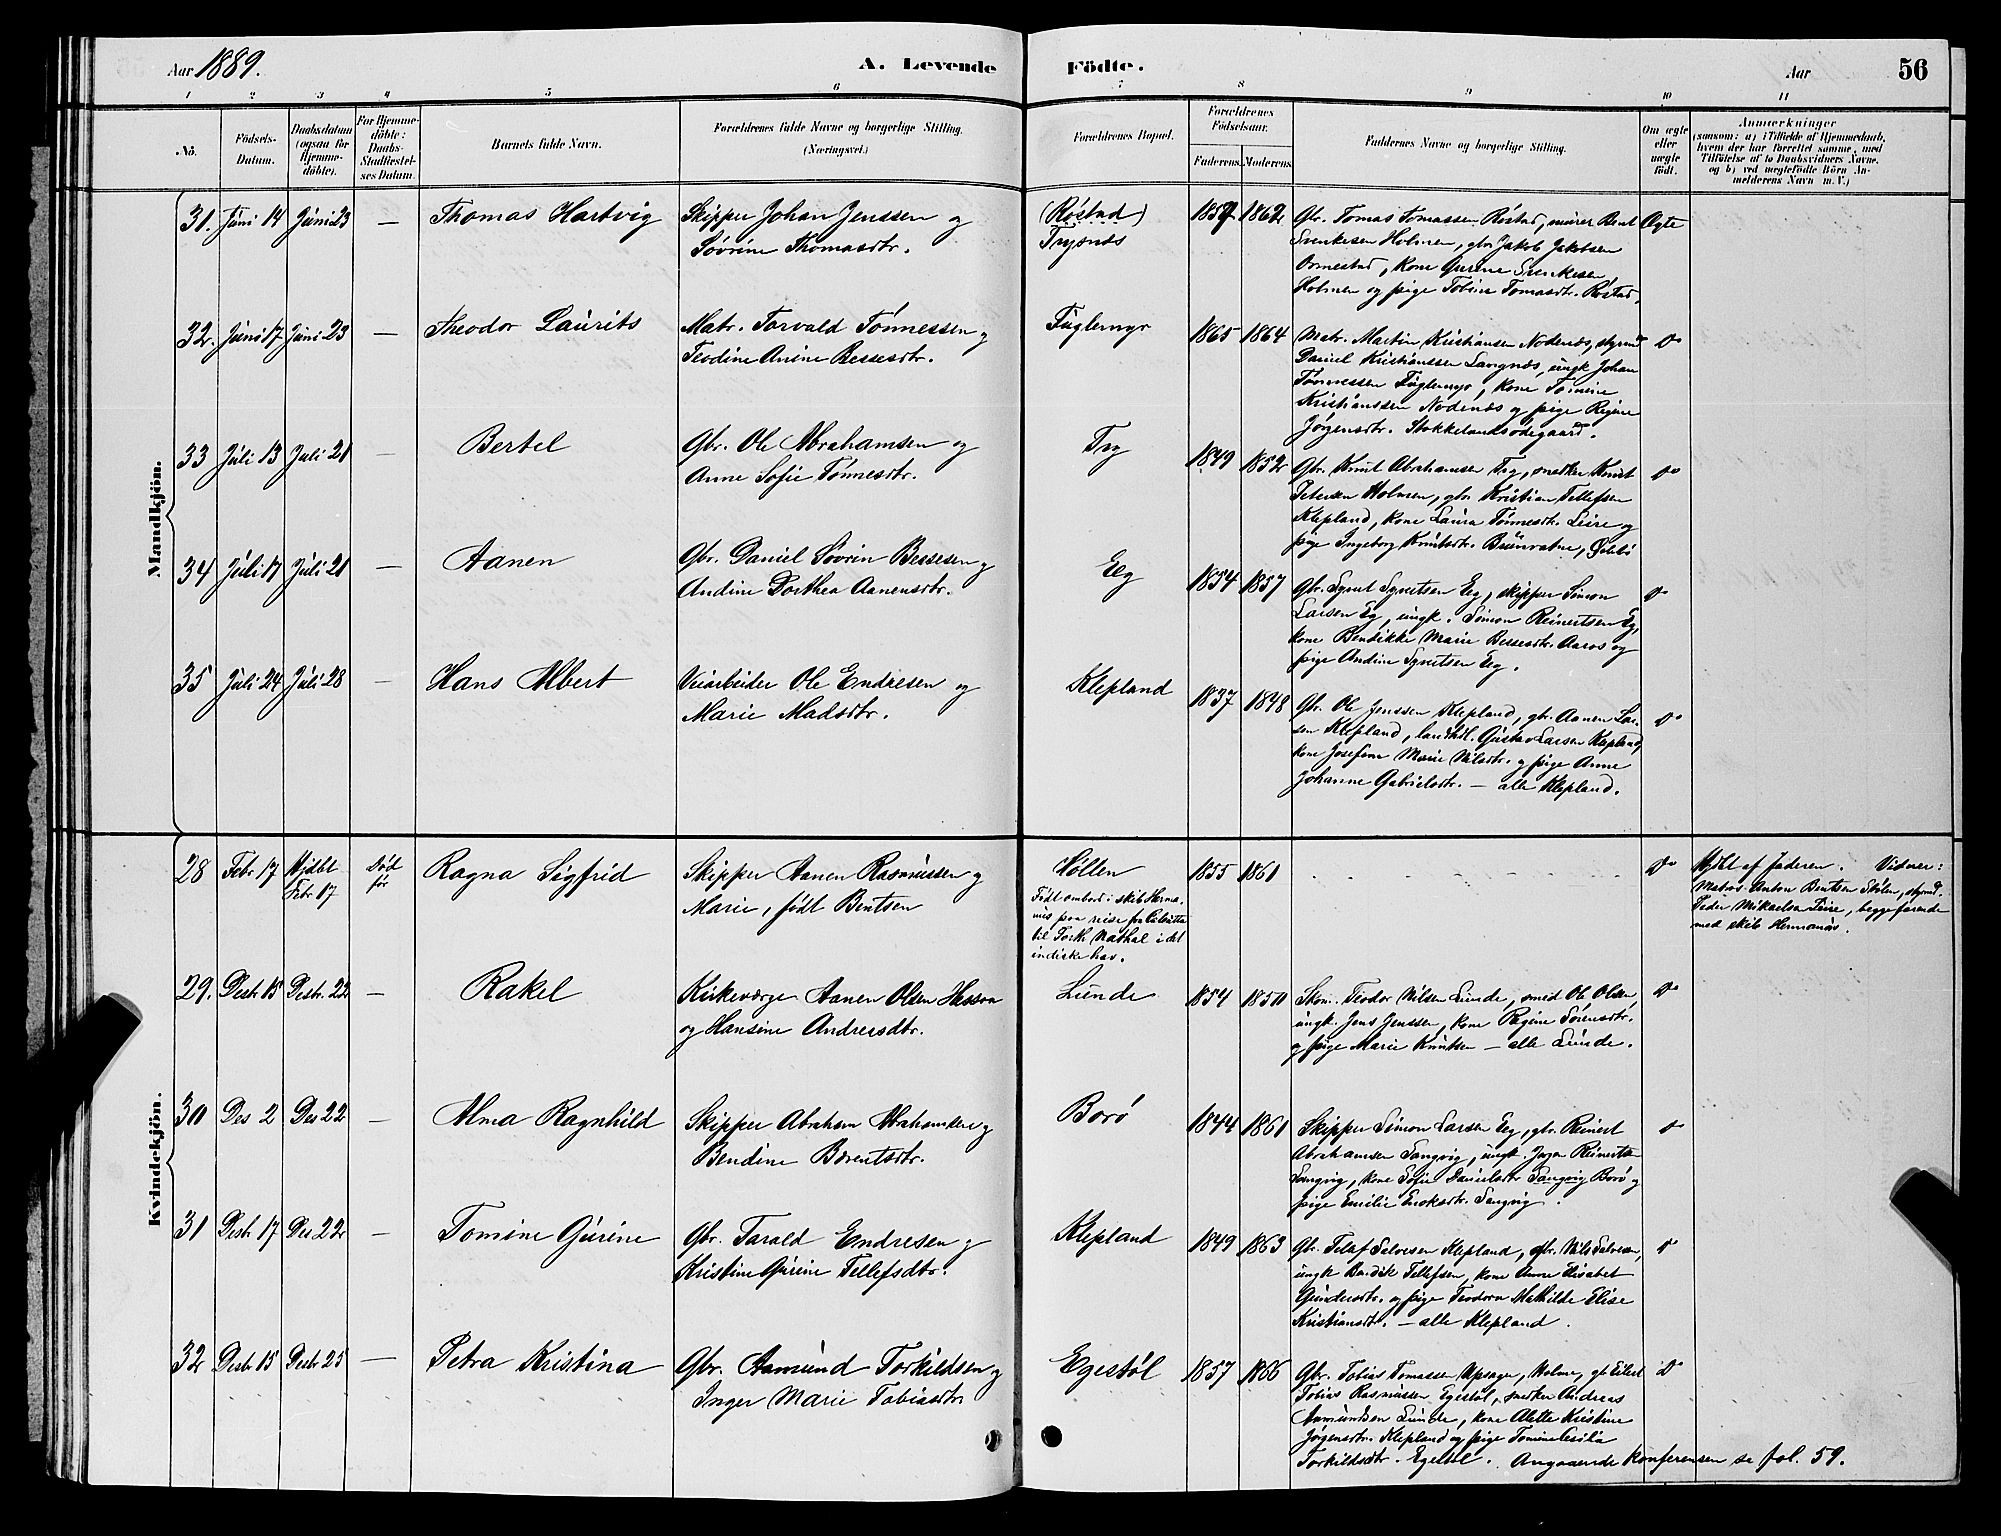 Aar 1889.
A. Levende
Födte.
Aar
56
1 2 3 4 5 6 7 8 9 10 11
No.
Födsels-
Datum.
Daabsdatum
(ogsaa för
Hjemme-
döbte).
For Hjemme-
döbte:
Daabs-
Stadfæstel-
ses Datum.
Barnets fulde Navn.
Forældrenes fulde Navne og borgerlige Stilling.
(Næringsvei.)
Forældrenes Bopæl.
Forældrenes
Födselsaar.
Faderens. Moderens.
Faddernes Navne og borgerlige Stilling.
Om ægte
eller
uægte
födt.
Anmærkninger
(saasom: a) i Tilfælde af Hjemmedaab,
hvem der har forrettet samme, med
Tilföielse af to Daabsvidners Navne,
og b) ved uægtefödte Börn An-
melderens Navn m. V.)
Mandkjön.
31. Juni 14 Juni 23 — Thomas Hartvig
Skipper Johan Jenssen og
Sövrine Thomasdtr.
(Röstad)
Trysnes
1857 1862
Gbr. Tomas Tomassen Röstad, murer Bent
Svenkesen Holmen, gbr Jakob Jakobsen
Ormestad, kone Gurine Svenkesen
Holmen og pige Tobine Tomasdtr. Röstad.
Ægte
32. Juni 17 Juni 23 — Theodor Laurits
Matr. Torvald Tönnessen og
Teodine Anine Bessesdtr.
Fuglemyr
1865 1864
Matr. Martin Kristiansen Nodenes, styrmd
Daniel Kristianssen Langnes, ungk Johan
Tönnessen Fuglemyr, kone Tomine
Kristianssen Nodenes og pige Regine
Jörgensdtr. Stokkelandsödegaard.
do
33 Juli 13 Juli 21 — Bertel
Gbr. Ole Abrahamsen og
Anne Sofie Tönnesdtr.
Try
1849 1852
Gbr. Knut Abrahamsen Try, snedker Knut
Petersen Holmen, gbr. Kristian Tellefsen
Klepland, kone Laura Tönnesdtr. Leire og
pige Ingeborg Knutsdtr. Brunvatne,
do
34 Juli 17 Juli 21 — Aanen
Gbr. Daniel Sövrin Bessesen og
Andine Dorthea Aanensdtr.
Eg
1854 1857
Gbr. Syvert Syvertsen Eg, skipper Simon
Larsen Eg, ungk. Simon Reinertsen Eg,
kone Bendikke Marie Bessesdtr. Aaros og
pige Andine Syvertsen Eg.
do
35 Juli 24 Juli 28 — Hans Albert
Veiarbeider Ole Endresen og
Marie Madsdtr.
Klepland
1837 1848
Gbr. Ole Jenssen Klepland, gbr. Aanen Lar-
sen Klepland, landhdl. Gustav Larsen Klepland,
kone Josefine Marie Nilsdtr. og pige Anne
Johanne Gabrielsdtr. — alle Klepland.
do
Kvindekjön.
28 Febr 17 Hjdbt
Febr. 17
Död
för
Ragna Sigfrid
Skipper Aanen Rasmussen og
Marie, född Bentsen
Höllen
Född ombord i skib Herma-
nus paa reise fra Calcutta
til Port Nathal i det
indiske hav.
1855 1861
do
Vidner:
Matros Anton Bentsen Stölen, styrmd.
Peder Mikaelsen Leire, begge farende
med skib Hermanus.
29. Desbr 15 Desbr. 22 — Rakel
Kirkeværge Aanen Olsen Hesson
og Hansine Andreasdtr.
Lunde
1854 1850
Skom. Teodor Nilsen Lunde, smed Ole Olsen,
ungk. Jens Jenssen, kone Regine Sörensdtr.
og pige Marie Knutsen — alle Lunde.
do
30 Des 2 Des 22 — Alma Ragnhild
Skipper Abraham Abrahamsen og
Bendine Bærentsdtr.
Borö
1844 1861
Skipper Simon Larsen Eg, gbr. Reinert
Abrahamsen Langvig, ungk. Jörgen Reinertsen
Langvig, kone Sofie Danielsdtr Langvig Borö og
pige Emilie Enoksdtr. Langvig.
do
31 Desbr 17 Des 22 — Tomine Gurine
Gbr. Tarald Endresen og
Kristine Gurine Tellefsdtr.
Klepland
1849 1863
Gbr. Tellef Salvesen Klepland, gbr. Nils Salvesen,
ungk Bendik Tellefsen, kone Anne Elisabet
Gundersdtr. og pige Teodora Mathilde Elise
Kristiansdtr. — alle Klepland.
do
32 Desbr 15 Desbr 25 — Petra Kristina
Gbr. Aamund Torkildsen og
Inger Marie Tobiasdtr
Egestöl
1857 1866
Gbr. Tobias Tomassen Holme, gbr Eilert
Tobias Rasmussen Egestöl, snedker Andreas
Aamundsen Lunde, kone Alette Kristine
Jörgensdtr. Klepland og pige Tomine
Torkildsdtr. Egestöl. Angaaende konferensen se fol. 59.
do